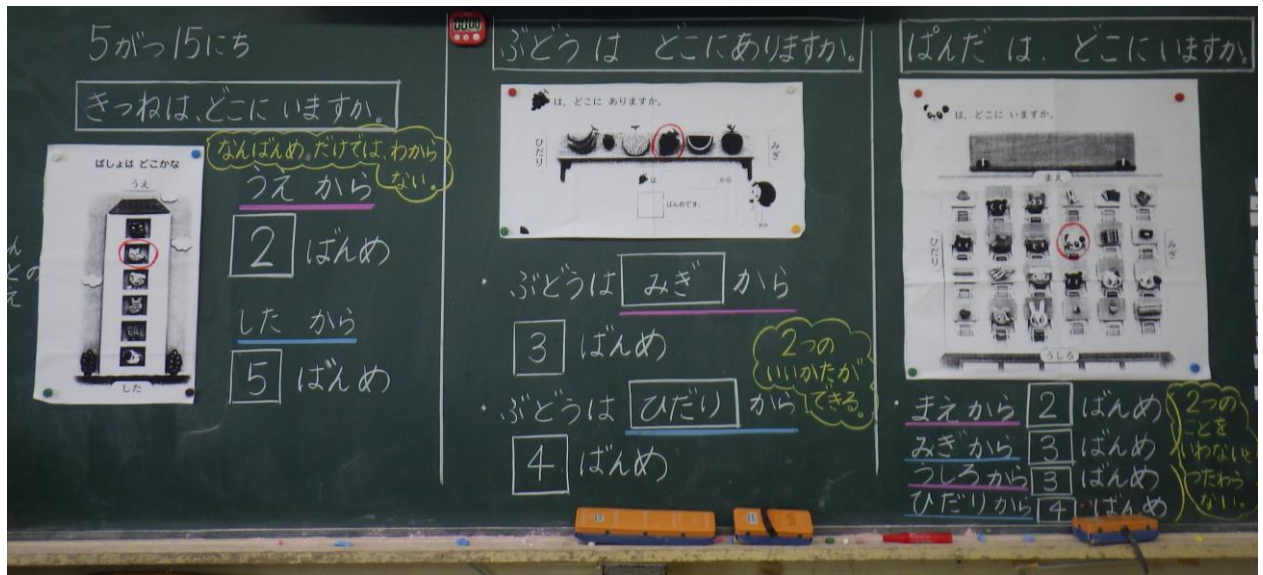 5がつ15にち
きつねは、どこに いますか。
なんばんめ。だけでは、わから
ない。
ばしょは どこかな
うえ
した
うえ から
2 ばんめ
した から
5 ばんめ
00:00
ぶどう は どこにありますか。
は、どこに ありますか。
ひだり
みぎ
は
から
ばんめです。
・ぶどうは みぎ から
3 ばんめ
・ぶどうは ひだり から
4 ばんめ
2つの
いいかたが
できる。
ぱんだ は、どこに いますか。
は、どこに いますか。
まえ
ひだり
みぎ
うしろ
まえから 2 ばんめ
みぎから 3 ばんめ
うしろから 3 ばんめ
ひだりから 4 ばんめ
2つの
ことを
いわないと
つたわら
ない。